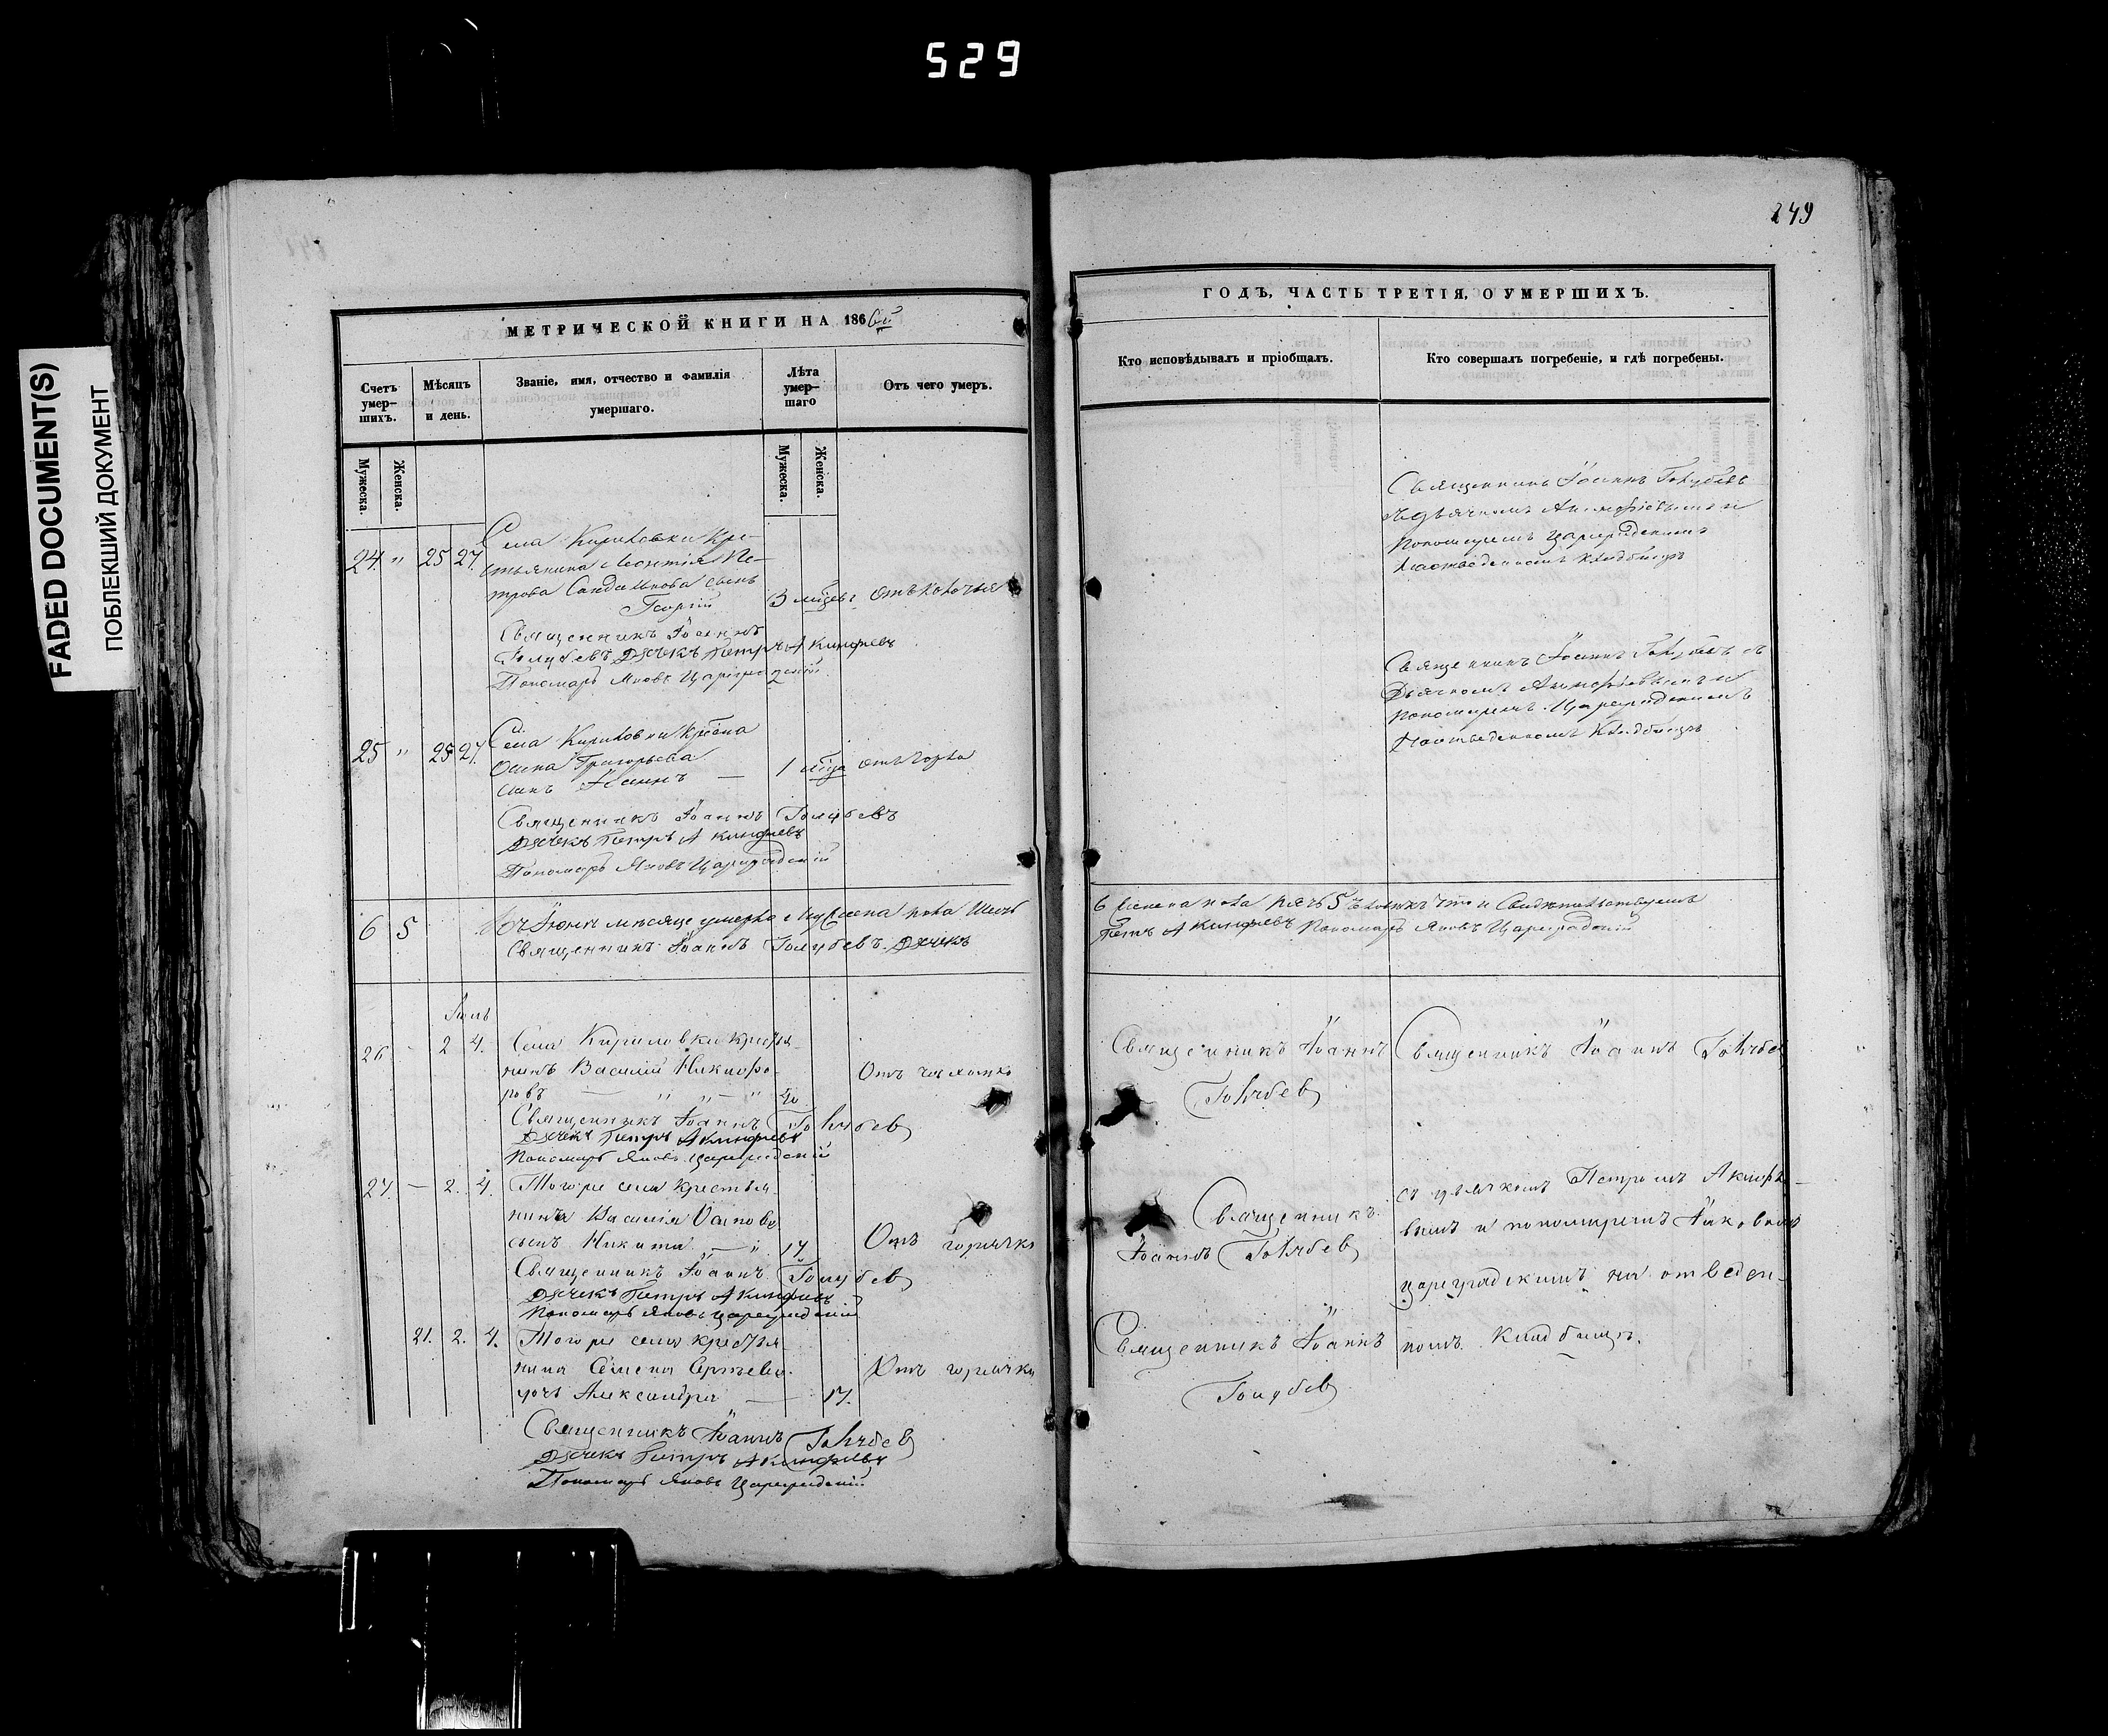 529
FADED DOCUMENT(S)
ПОБЛЕКШИЙ ДОКУМЕНТ
249
МЕТРИЧЕСКОЙ КНИГИ НА 186
Счетъ умер-шихъ.
Мѣсяцъ и день.
Званіе, имя, отчество и фамилія умершаго.
Лѣта умер-шаго
Отъ чего умеръ.
Мужеска.
Женска.
Мужеска.
Женска.
24. " 25 27.
Села Кириловки Кре-
стьянина Леонтія Пе-
трова сынъ
Георгій
3
Священникъ Іоаннъ
Голубевъ Дячекъ Петръ Акинфиевъ
Пономарь Яковъ Цареградскій
25 " 25 27.
Села Кириловки
Осипа Григорьева
сынъ Іоаннъ — 1
Священникъ Іоаннъ Голубевъ
Дячекъ Петръ Акинфиевъ
Пономарь Яковъ Цареградскій
6 5
Въ Іюнѣ мѣсяце умерло Мужеска пола Шесть
Священникъ Іоаннъ Голубевъ. Дячекъ
Іюль
26 - 2 4.
Села Кириловки кресть-
нинъ Василій Никифо-
ровъ — " " — " 40.
Отъ
Священникъ Іоаннъ Голубев
Дячекъ Петръ Акинфиевъ
Пономарь Яковъ Цареградскій
27. — 2. 4.
Тогоже села крестья-
нина Василія Осипова
сынъ Никита — " 17
Отъ горячки
Священникъ Іоаннъ Голубев
Дячекъ Петръ Акинфиевъ
Пономарь Яковъ Цареградскій
21. 2. 4.
Тогоже села крестья-
нина Семена Сергѣева
дочь Александра — 17.
Отъ горячки
Священникъ Іоаннъ Голубев
Дячекъ Петръ Акинфиевъ
Пономарь Яковъ Цареградскій
ГОДЪ, ЧАСТЬ ТРЕТІЯ, О УМЕРШИХЪ.
Кто исповѣдывалъ и пріобщалъ.
Кто совершалъ погребеніе, и гдѣ погребены.
Священникъ Іоаннъ Голубевъ
съ дьячкомъ Акинфіевымъ и
Пономаремъ Цареградскимъ
на отведенномъ кладбищѣ
Священникъ Іоаннъ Голубевъ съ
Дьячкомъ Акинфіевымъ и
Пономаремъ Цареградскимъ
на отведенномъ кладбищѣ
6 женска пола пять 5
Петръ Акинфиевъ Пономарь Яковъ Цареградскій
Священникъ Іоаннъ
Голубев
Священникъ Іоаннъ Голубев
Священникъ
Іоаннъ Голубев
съ дьячкомъ Петромъ Акинфіе-
вымъ и пономаремъ Яковомъ
цареградскимъ на отведен-
номъ кладбищѣ.
Священникъ Іоаннъ
Голубев